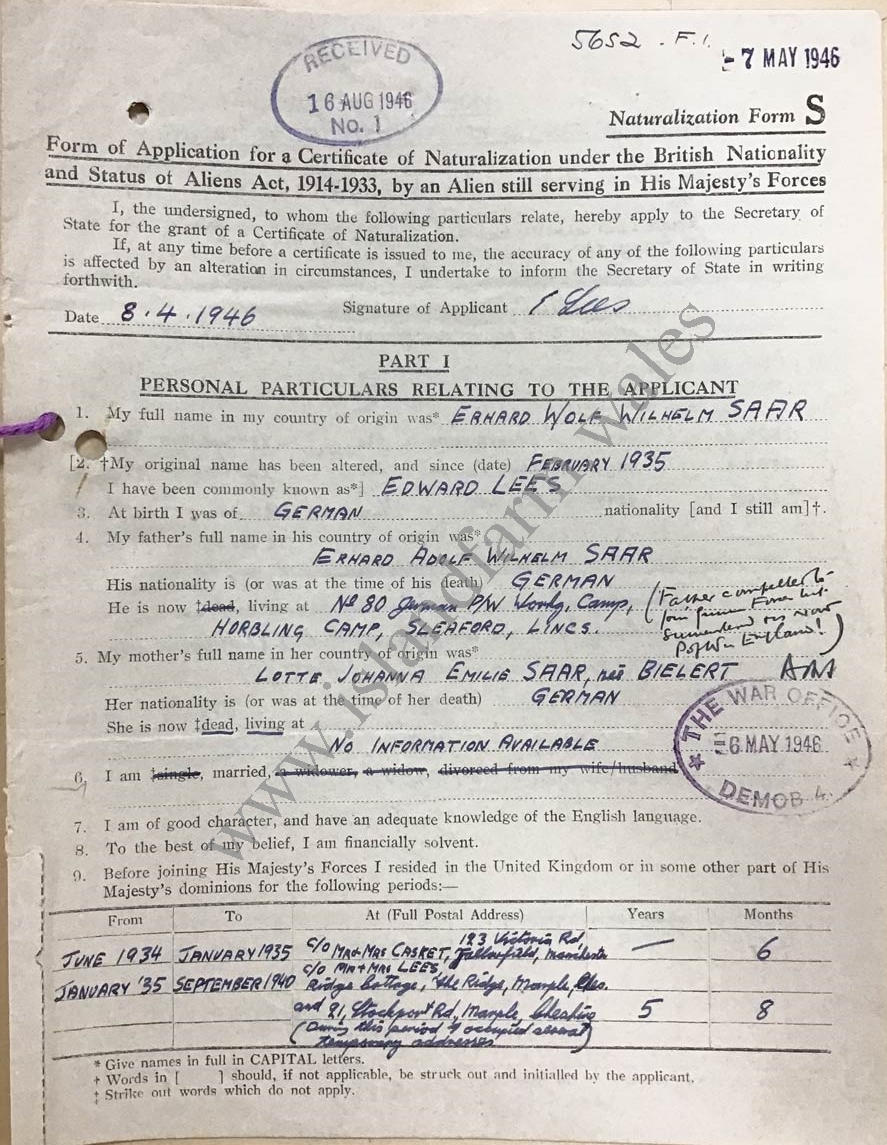 5652 . F.1.
- 7 MAY 1946
RECEIVED
16 AUG 1946
No. 1
Naturalization Form S
Form of Application for a Certificate of Naturalization under the British Nationality
and Status of Aliens Act, 1914-1933, by an Alien still serving in His Majesty's Forces
I, the undersigned, to whom the following particulars relate, hereby apply to the Secretary of
State for the grant of a Certificate of Naturalization.
If, at any time before a certificate is issued to me, the accuracy of any of the following particulars
is affected by an alteration in circumstances, I undertake to inform the Secretary of State in writing
forthwith.
Date 8.4.1946 Signature of Applicant Lees
PART I
PERSONAL PARTICULARS RELATING TO THE APPLICANT
1. My full name in my country of origin was* ERHARD WOLF WILHELM SAAR
[2. †My original name has been altered, and since (date) FEBRUARY 1935
I have been commonly known as*] EDWARD LEES
3. At birth I was of GERMAN nationality [and I still am]†.
4. My father's full name in his country of origin was*
ERHARD ADOLF WILHELM SAAR
His nationality is (or was at the time of his death) GERMAN
He is now ‡dead, living at No 80 German P/W Workg. Camp,
HORBLING CAMP, SLEAFORD, LINCS.
(Father compelled to
join German Forces but
surrendered & is now
P of W in England!)
5. My mother's full name in her country of origin was*
LOTTE JOHANNA EMILIE SAAR, née BIELERT
Her nationality is (or was at the time of her death) GERMAN
She is now ‡dead, living at
NO INFORMATION AVAILABLE
THE WAR OFFICE
6 MAY 1946
DEMOB 4.
6. I am ‡single, married, a widower, a widow, divorced from my wife/husband
7. I am of good character, and have an adequate knowledge of the English language.
8. To the best of my belief, I am financially solvent.
9. Before joining His Majesty's Forces I resided in the United Kingdom or in some other part of His
Majesty's dominions for the following periods:—
From To At (Full Postal Address) Years Months
JUNE 1934 JANUARY 1935 c/o Mr & Mrs CASKET, 123 Victoria Rd, Fallowfield, Manchester — 6
JANUARY '35 SEPTEMBER 1940 c/o Mr & Mrs LEES, Ridge Cottage, The Ridge, Marple, Ches.
and 21, Stockport Rd, Marple, Cheshire 5 8
(During this period I occupied several
temporary addresses)
* Give names in full in CAPITAL letters.
† Words in [ ] should, if not applicable, be struck out and initialled by the applicant.
‡ Strike out words which do not apply.
www.islandfarm.wales